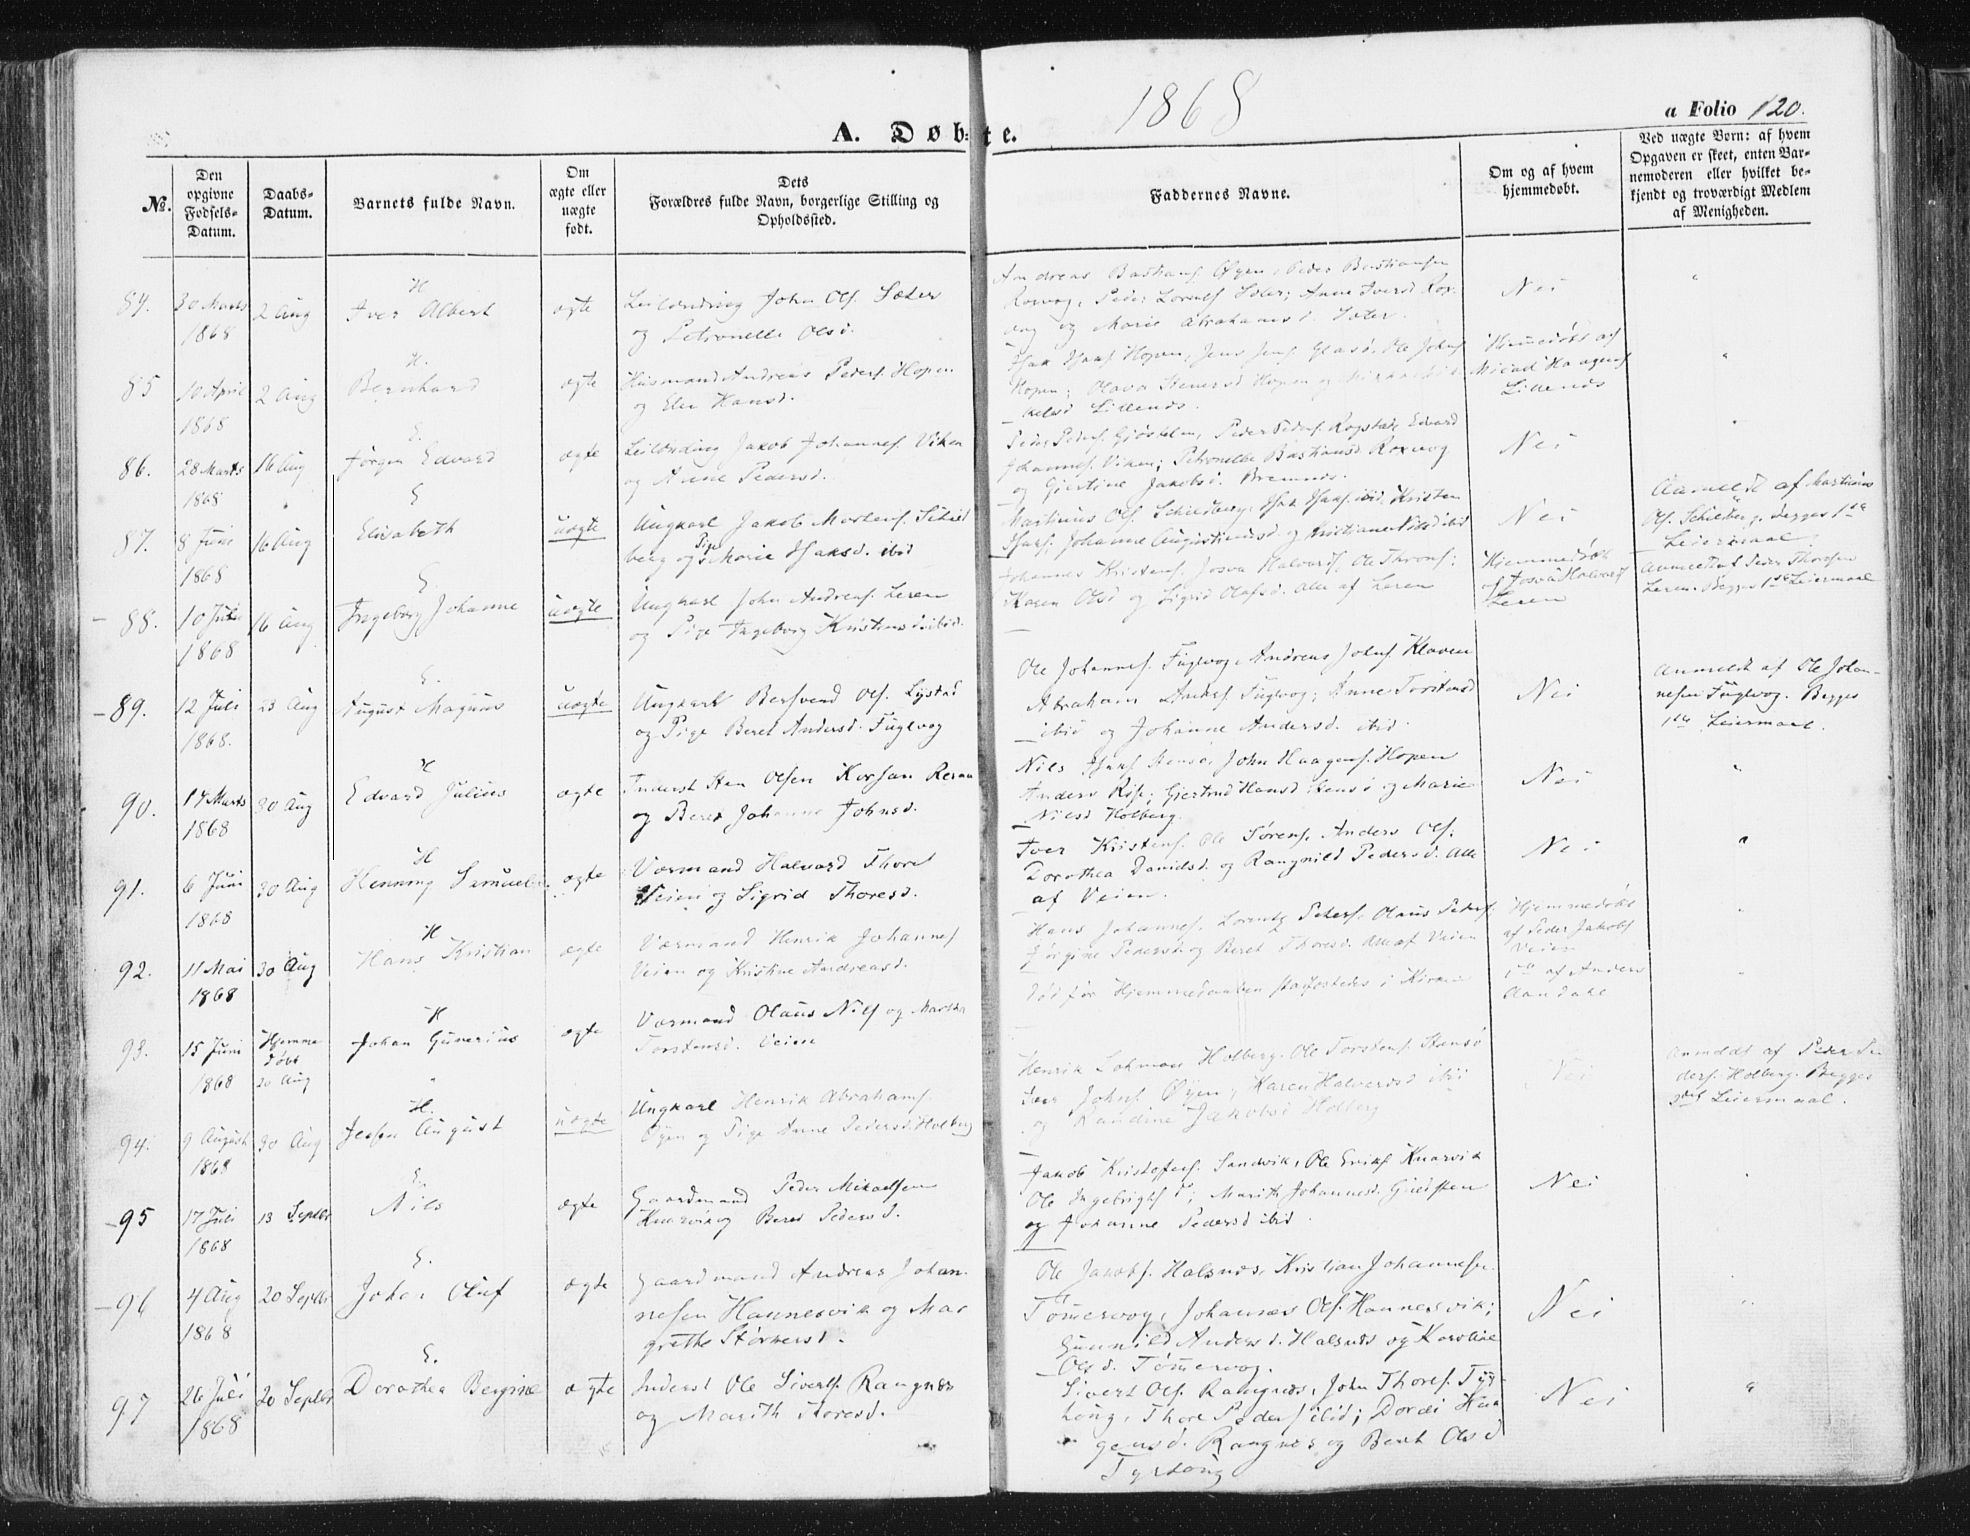 1868
a Folio 120.
A. Døb=te.
№.
Den opgivne Fødsels-Datum.
Daabs-Datum.
Barnets fulde Navn.
Om ægte eller uægte født.
Dets Forældres fulde Navn, borgerlige Stilling og Opholdssted.
Faddernes Navne.
Om og af hvem hjemmedøbt.
Ved uægte Børn: af hvem Opgaven er skeet, enten Barnemoderen eller hvilket bekjendt og troværdigt Medlem af Menigheden.
84. 30 Marts 1868 2 Aug
H
Iver Albert ægte
Leilænding John Ols. Sæter
og Petronelle Olsd.
Andreas Bastians. Øyen, Peder Bastiansen
Roxvog, Peder Lorents Sæter; Anne Iversd Rox-
vog og Marie Abrahamsd. Sæter.
Nei "
85 10 April 1868 2 Aug
H.
Bernhard ægte
Husmand Andreas Peders. Hopen
og Elen Hansd.
Isak Isaks Hopen, Jens Jens.
Ole Johns
Hopen; Olava
Hopen og
Hjemmedøbt af
Haagens
"
86. 28 Marts 1868 16 Aug
E.
Jørgen Edvard ægte
Leilænding Jakob Johannes. Viken
og Anne Pedersd.
Peder Peders.
Peder Peders. Rogstad, Edvard
Johannes. Viken; Petronelle Bastiansd. Roxvog
og Gjertine Jakobsd. Bremnes.
Nei "
87. 8 Juni 1868 16 Aug
E
Elisabeth uægte
Ungkarl Jakob Mortens. Schild
berg og Pige Marie Isaksd. ibid
Martinus Ols. Schildberg, Isak Isaks. ibid, Kristen
Isaks; Johanne Augustinusd og Kristiane Nilsd ibid
Nei
Anmeldt af Martinus
Ols. Schildberg. Begges 1ste
Leiermaal.
88. 10 Juli 1868 16 Aug
E
Ingeborg Johanne uægte
Ungkarl John Andreas. Leren
og Pige Ingeborg Kristensd. ibid.
Johannes Kristens, Josva Halvards, Ole Throns;
Karen Olsd og Sigrid Olafsd. Alle af Leren
Hjemmedøbt
af Josva Halvards
Leren
Anmeldt af Peder Thoresen
Leren. Begges 1ste Leiermaal
89. 12 Juli 1868. 23 Aug
E.
August Magnus uægte
Ungkarl Bersvend Ols. Lystad
og Pige Beret Andersd. Fuglvog
Ole Johannes. Fuglvog, Andreas Johns. Klaven
Abraham Anders Fuglvog; Anne Torstensd
ibid og Johanne Andersd. ibid.
Nei
Anmeldt af Ole Johan-
nesen Fuglvog. Begges
1ste Leiermaal.
90. 14 Marts 1868 30 Aug
H
Edvard Julius ægte
Inderst Hen Olsen
og Beret Johanna Johnsd.
Nils Isaks Stensø, John Haagens. Hopen
Anders
Gjertrud Hansd Stensø og Marie
Nilsd Holberg.
Nei "
91. 6 Juni 1868 30 Aug
H
Henning Samuel ægte
Værmand Halvard Thores
Veien og Sigrid Thoresd.
Iver Kristens. Ole Sørens. Anders Ols;
Dorothea Danielsd. og Rangnild Pedersd. Alle
af Veien.
Nei "
92. 11 Mai 1868 30 Aug
H
Hans Kristian ægte
Værmand Henrik Johannes
Veien og Kristine Andreasd.
Hans Johannes. Lorentz Peders. Olaus Peders;
Jørgine Pedersd. og Beret Thoresd. Alle af Veien
Hjemmedøbt
af Peder Jakobs
Veien
"
93. 15 Juni 1868 Hjemme døbt 20 Aug
H
Johan Gunerius ægte
Værmand Olaus Nils og Martha
Torstensd. Veien
Død før Hjemmedaaben
i Kirken
af Anders
Aandahl
"
94. 9 August 1868 30 Aug
H.
August uægte
Ungkarl Henrik Abrahams.
Øyen og Pige Anne Pedersd. Holberg
Henrik Lohman Holberg. Ole Torstens. Stensø
Iver Johns Øyen; Karen Halvorsd ibid
og Randine Jakobsd Holberg
Nei
Anmeldt af Peder Pe-
ders. Holberg. Begges
Leiermaal.
95 17 Juli 1868 13 Septbr
E.
Nils ægte
Gaardmand Peder Mikaelsen
Knarvik og Beret Pedersd.
Jakob Kristoffers. Sandvik, Ole Eriks Knarvik
Ole Ingebrigts do; Marith Johannesd.
og Johanne Pedersd ibid.
Nei "
96 4 Aug 1868 20 Septbr
E.
Johan Oluf ægte
Gaardmand Andreas Johan-
nesen Hannesvik og Mar
grethe Størkersd.
Ole Jakobs. Halsnes, Kristian Johannesen
Tømervog, Johannes Ols. Hannesvik;
Gunnild Andersd. Halsnes og Karoline
Olsd. Tømervog.
Nei "
97 26 Juli 1868 20 Septbr
E.
Dorothea Bergine ægte
Inderst Ole Siverts. Rangnæs
og Marith Thoresd.
Sivert Ols. Rangnes, John Thores. Tyr-
houg, Thore Peders ibid; Dordi Haa
gensd. Rangnes og Beret Olsd
Tyrhoug
Nei "